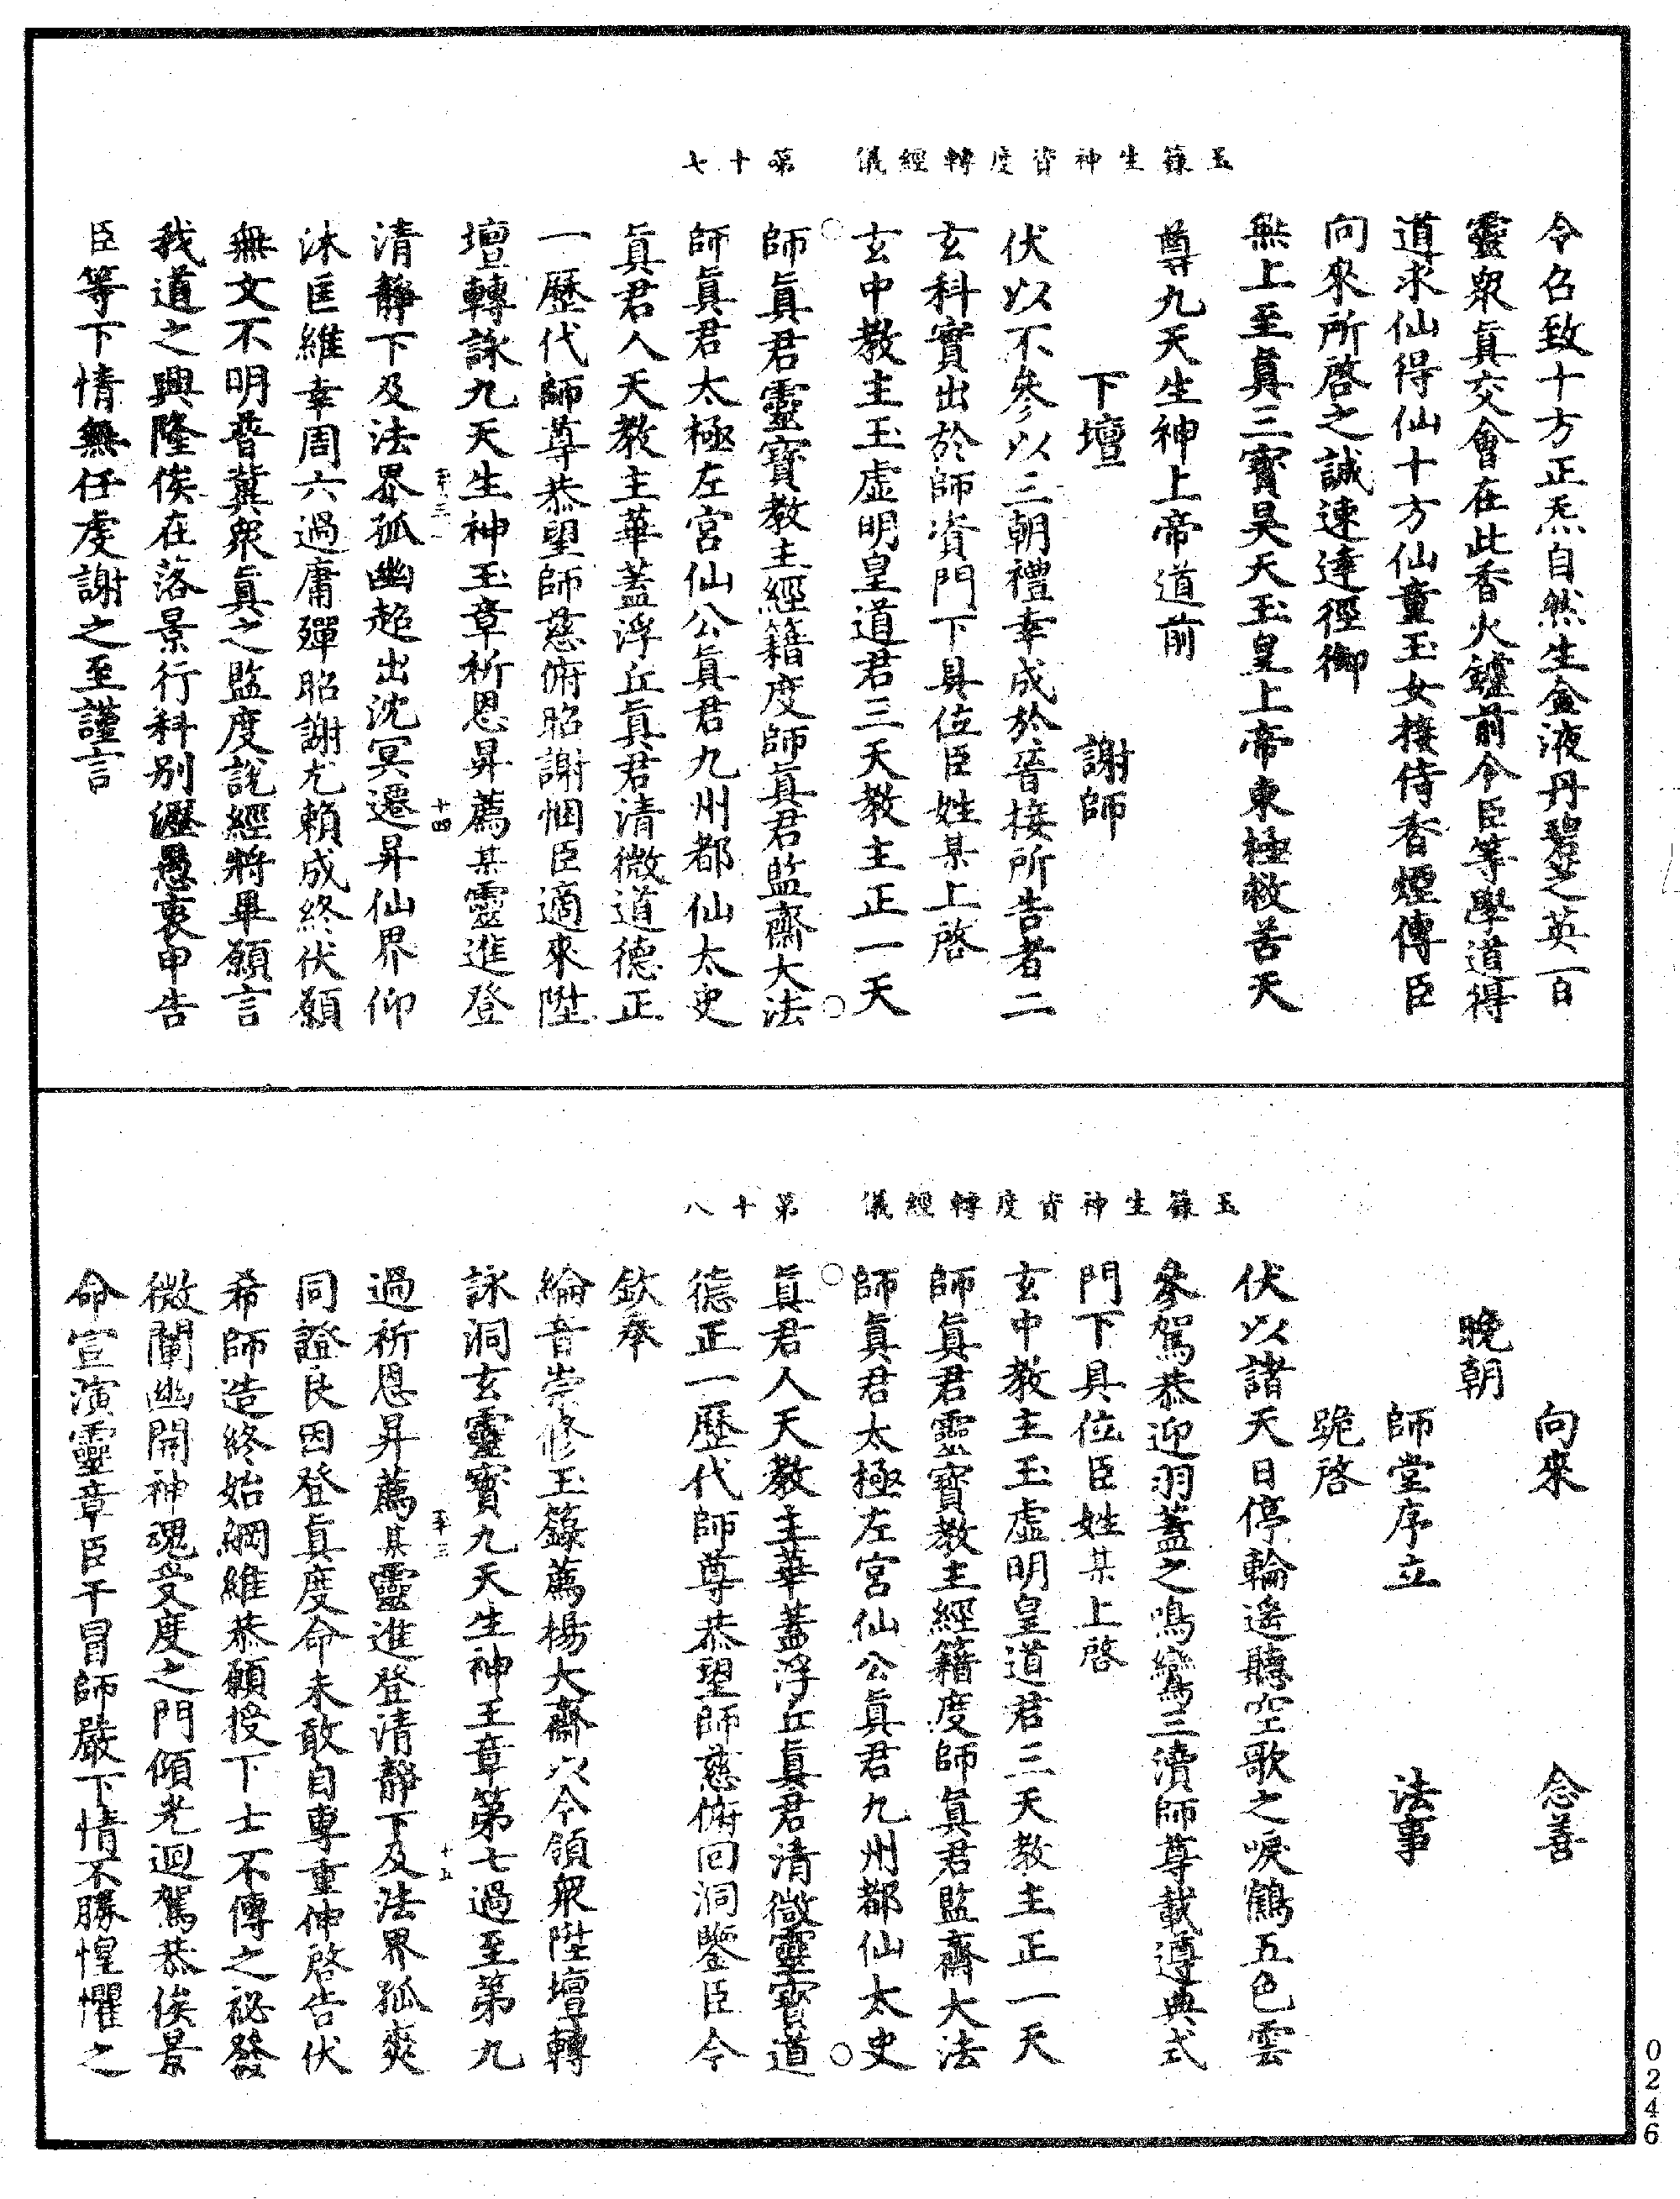 玉籙生神資度轉經儀　第十七
令召致十方正炁自然生金液丹碧芝英百
靈衆眞交會在此香火鑪前令臣等學道得
道求仙得仙十方仙童玉女接侍香煙傳臣
向來所啓之誠速達徑御
無上至眞三寶昊天玉皇上帝東極救苦天
尊九天生神上帝道前
下壇　謝師
伏以不參以三朝禮幸成於晉接所告者二
玄科實出於師資門下具位臣姓某上啓
玄中教主玉虛明皇道君三天教主正一天
師眞君靈寶教主經籍度師眞君監齋大法
師眞君太極左宮仙公眞君九州都仙太史
眞君人天教主華蓋浮丘眞君清微道德正
一歷代師尊恭望師慈俯昭謝悃臣適來陞
壇轉詠九天生神玉章祈恩昇薦某靈進登
清靜下及法界孤幽超出沈冥遷昇仙界仰
沐匡維幸周六過庸殫昭謝尤賴成終伏願
無文不明普冀衆眞之監度說經將畢願言
我道之興隆俟在落景行科別瀝愚衷申告
臣等下情無任虔謝之至謹言
玉籙生神資度轉經儀　第十八
向來　念善
晚朝
師堂序立　法事
跪啓
伏以諸天日停輪遙聽空歌之唳鶴五色雲
參駕恭迎羽蓋之鳴鸞三瀆師尊載遵典式
門下具位臣姓某上啓
玄中教主玉虛明皇道君三天教主正一天
師眞君靈寶教主經籍度師眞君監齋大法
師眞君太極左宮仙公眞君九州都仙太史
眞君人天教主華蓋浮丘眞君清微靈寶道
德正一歷代師尊恭望師慈俯回洞鑒臣今
欽奉
綸音崇修玉籙薦揚大齋以今領衆陞壇轉
詠洞玄靈寶九天生神玉章第七過至第九
過祈恩昇薦某靈進登清靜下及法界孤爽
同證良因登眞度命未敢自專重伸啓告伏
希師造終始綱維恭願授下士不傳之祕發
微闡幽開神魂受度之門傾光迴駕恭俟景
命宣演靈章臣干冒師嚴下情不勝惶懼之
0246